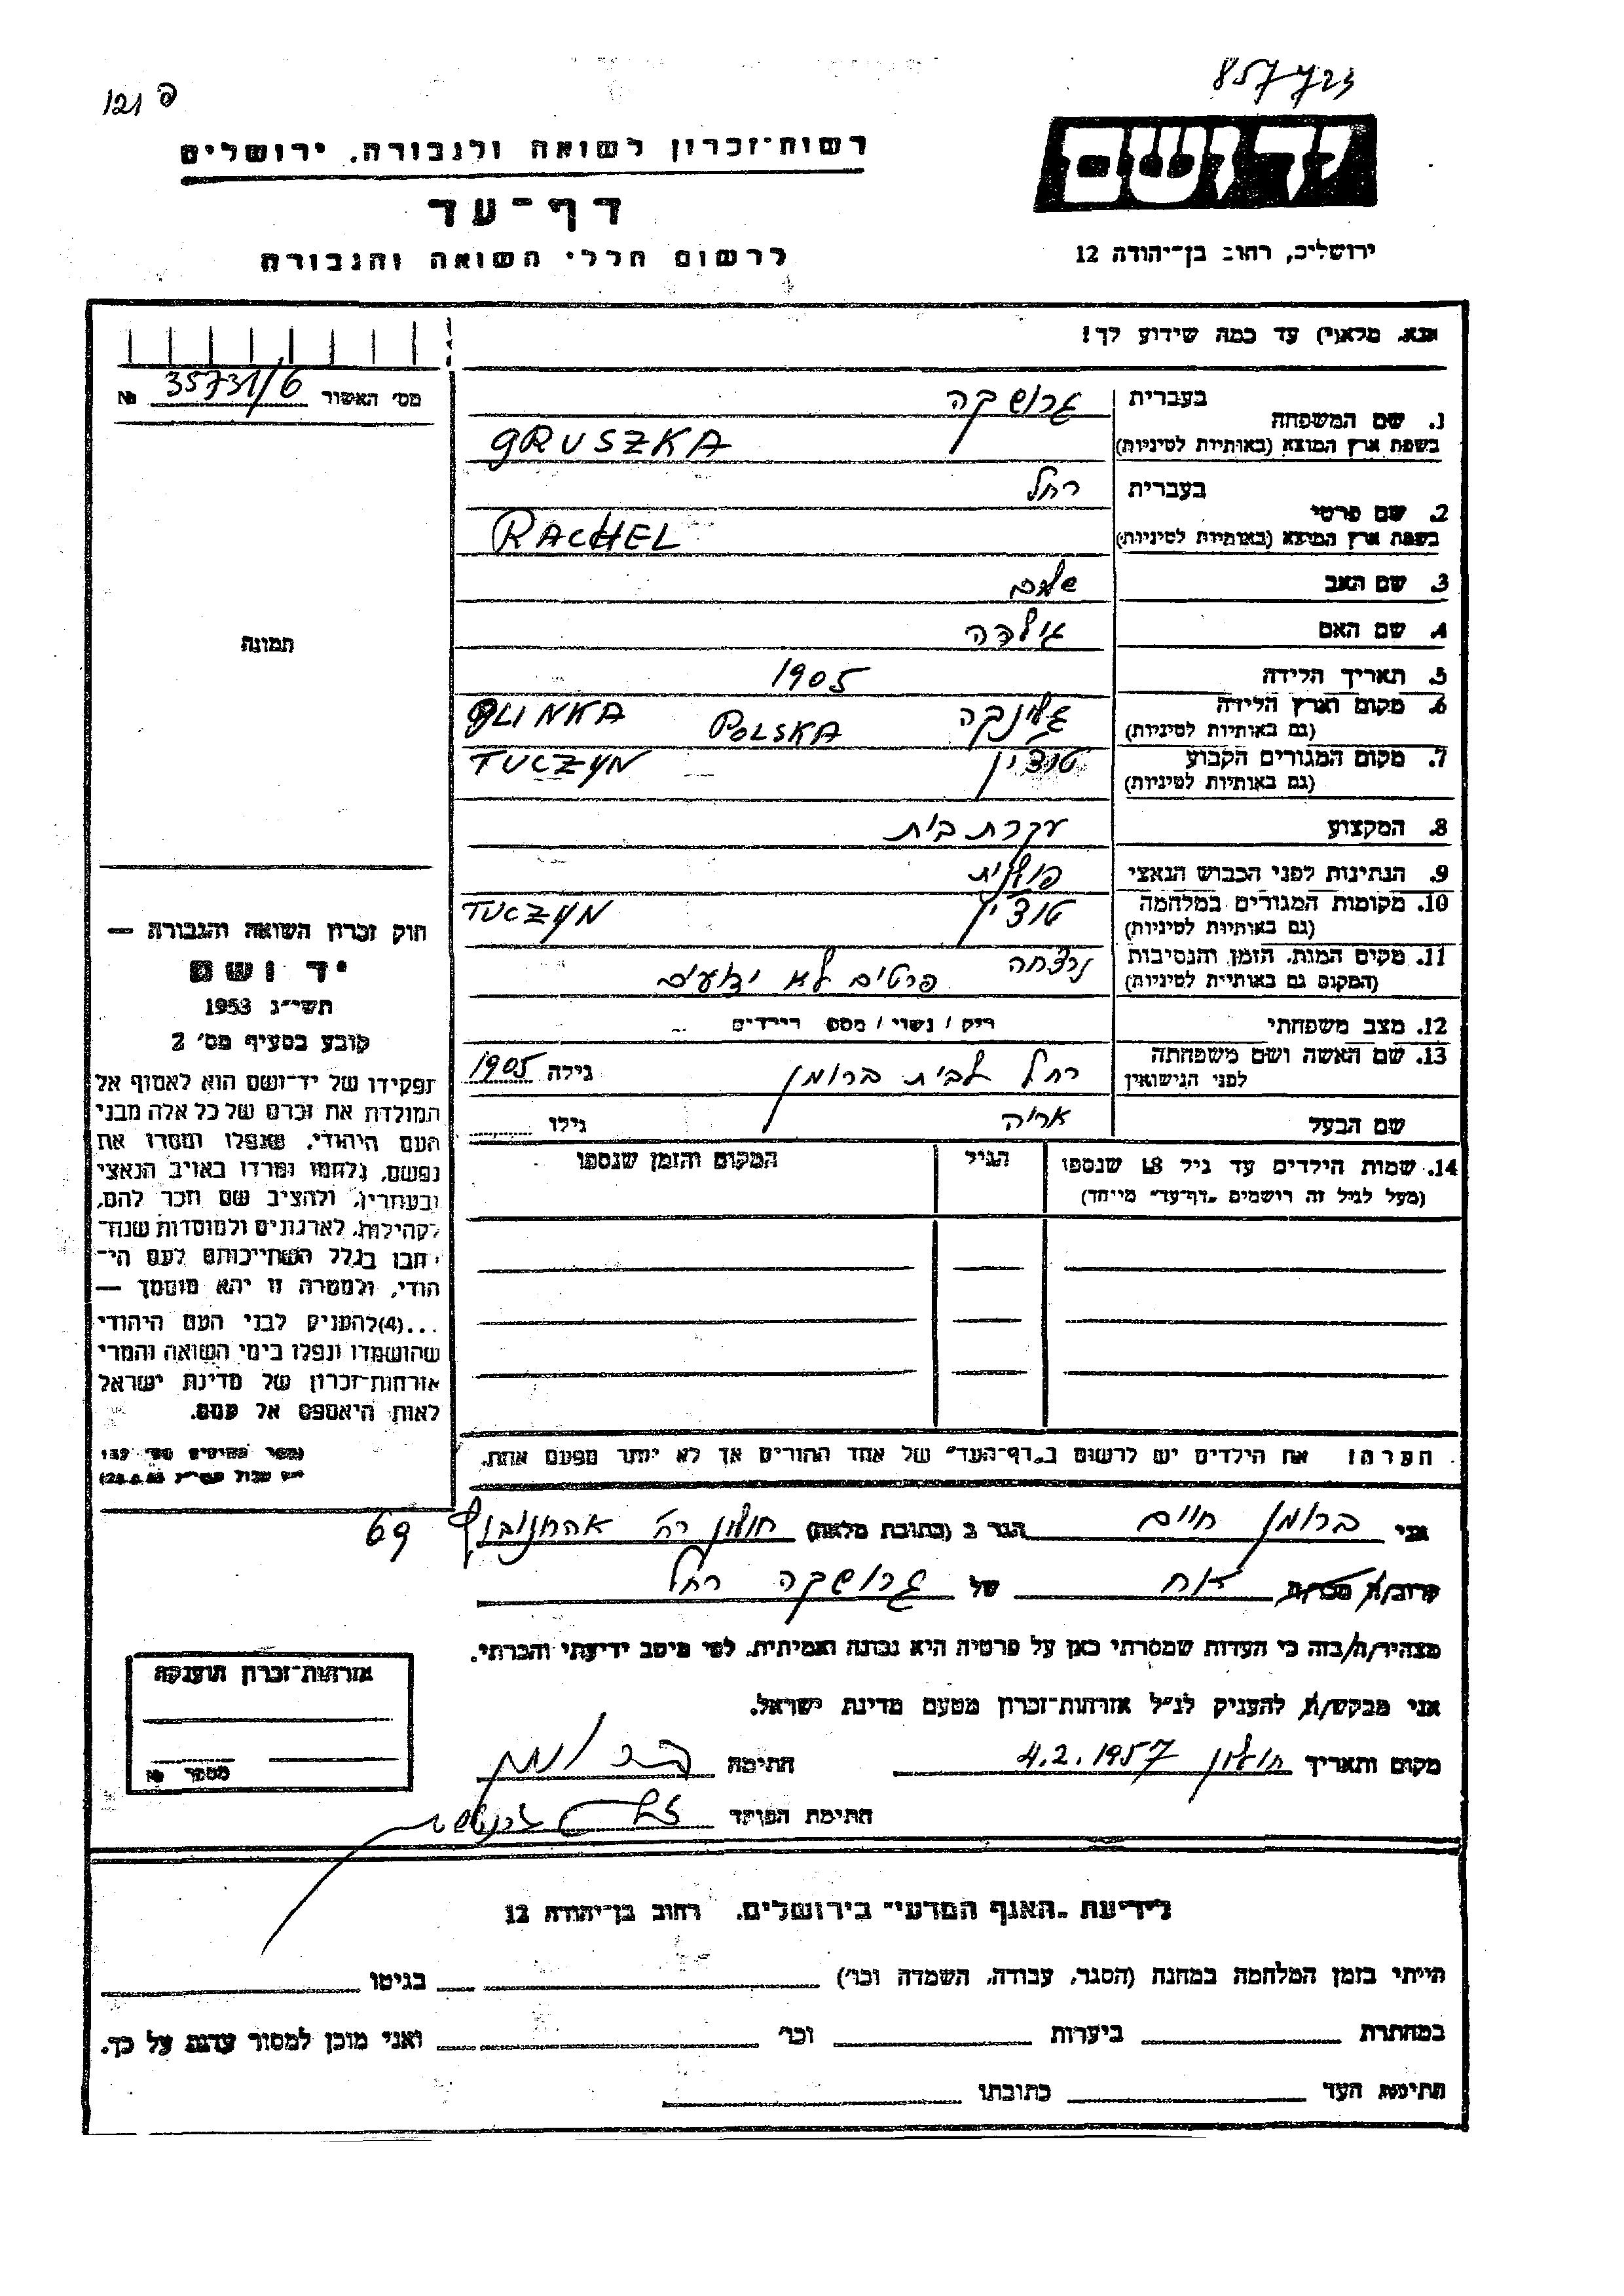 857 723
121 פ
יד ושם
רשות־זכרון לשואה ולגבורה, ירושלים
דף־עד
ירושלים, רחוב בן־יהודה 12
לרשום חללי השואה והגבורה
נא. מלא(י) עד כמה שידוע לך!
מס׳ האשור 35731/6 №
תמונה
1. שם המשפחה
בעברית גרושקה
בשפת ארץ המוצא (באותיות לטיניות) GRUSZKA
2. שם פרטי
בעברית רחל
בשפת ארץ המוצא (באותיות לטיניות) RACHEL
3. שם האב שלום
4. שם האם גולדה
5. תאריך הלידה 1905
6. מקום וארץ הלידה גלינקה POLSKA GLINKA
(גם באותיות לטיניות)
7. מקום המגורים הקבוע טוצ׳ין TUCZYN
(גם באותיות לטיניות)
8. המקצוע עקרת בית
9. הנתינות לפני הכבוש הנאצי פולנית
10. מקומות המגורים במלחמה טוצ׳ין TUCZYN
(גם באותיות לטיניות)
11. מקום המות, הזמן והנסיבות נרצחה פרטים לא ידועים
(המקום גם באותיות לטיניות)
12. מצב משפחתי רוק / נשוי / מספר הילדים
13. שם האשה ושם משפחתה רחל לבית ברומן גילה 1905
לפני הנישואין
שם הבעל אריה גילו
14. שמות הילדים עד גיל 18 שנספו הגיל המקום והזמן שנספו
(מעל לגיל זה רושמים „דף־עד״ מיוחד)
חוק זכרון השואה והגבורה —
יד ושם
תשי״ג 1953
קובע בסעיף מס׳ 2
תפקידו של יד־ושם הוא לאסוף אל
המולדת את זכרם של כל אלה מבני
העם היהודי, שנפלו ומסרו את
נפשם, נלחמו ומרדו באויב הנאצי
ובעוזריו, ולהציב שם וזכר להם,
לקהילות, לארגונים ולמוסדות שנח־
רבו בגלל השתייכותם לעם הי־
הודי, ולמטרה זו יהא מוסמך —
...(4)להעניק לבני העם היהודי
שהושמדו ונפלו בימי השואה והמרי
אזרחות־זכרון של מדינת ישראל
לאות היאספם אל עמם.
הערה! את הילדים יש לרשום ב„דף־העד״ של אחד ההורים אך לא יותר מפעם אחת.
אני ברומן חיים הגר ב (כתובת מלאה) חולון רח׳ 69
קרוב/ה מכר/ה אח של גרושקה רחל
מצהיר/ה/בזה כי העדות שמסרתי כאן על פרטיה היא נכונה ואמיתית, לפי מיטב ידיעתי והכרתי.
אני מבקש/ת להעניק לנ״ל אזרחות־זכרון מטעם מדינת ישראל.
מקום ותאריך חולון 4.2.1957 חתימה ברומן
חתימת הפוקד
אזרחות־זכרון הוענקה
מספר №
לידיעת „האגף המדעי״ בירושלים, רחוב בן־יהודה 12
הייתי בזמן המלחמה במחנה (הסגר, עבודה, השמדה וכו׳) בגיטו
במחתרת ביערות וכו׳ ואני מוכן למסור עדות על כך.
חתימת העד כתובתו